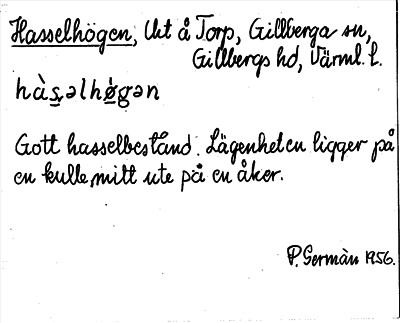 Hasselhögen, Urt å Torp, Gillberga sn,
Gillbergs hd, Värml. l.
hàs̲əlhø̲gən
Gott hasselbestånd. Lägenheten ligger på
en kulle, mitt ute på en åker.
P. Germàn 1956.